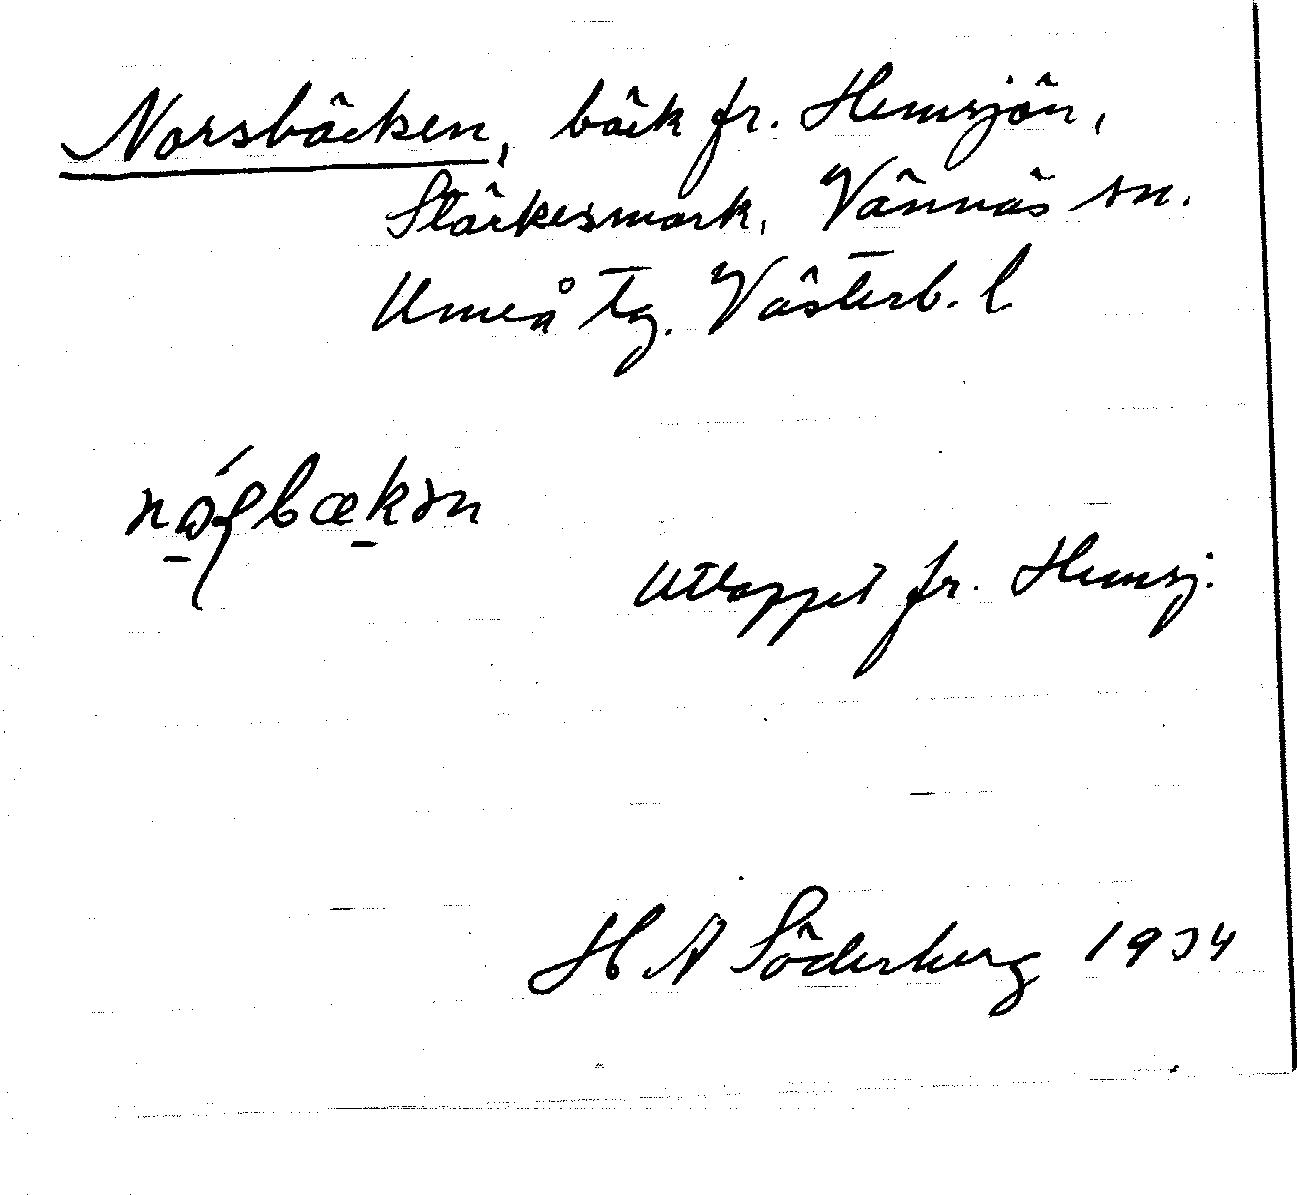 Norsbäcken, bäck fr. Hemsjön,
Stärkesmark, Vännäs sn.
Umeå tg. Västerb. l.
Utloppet fr. Hemsj.
H A Söderberg 1934